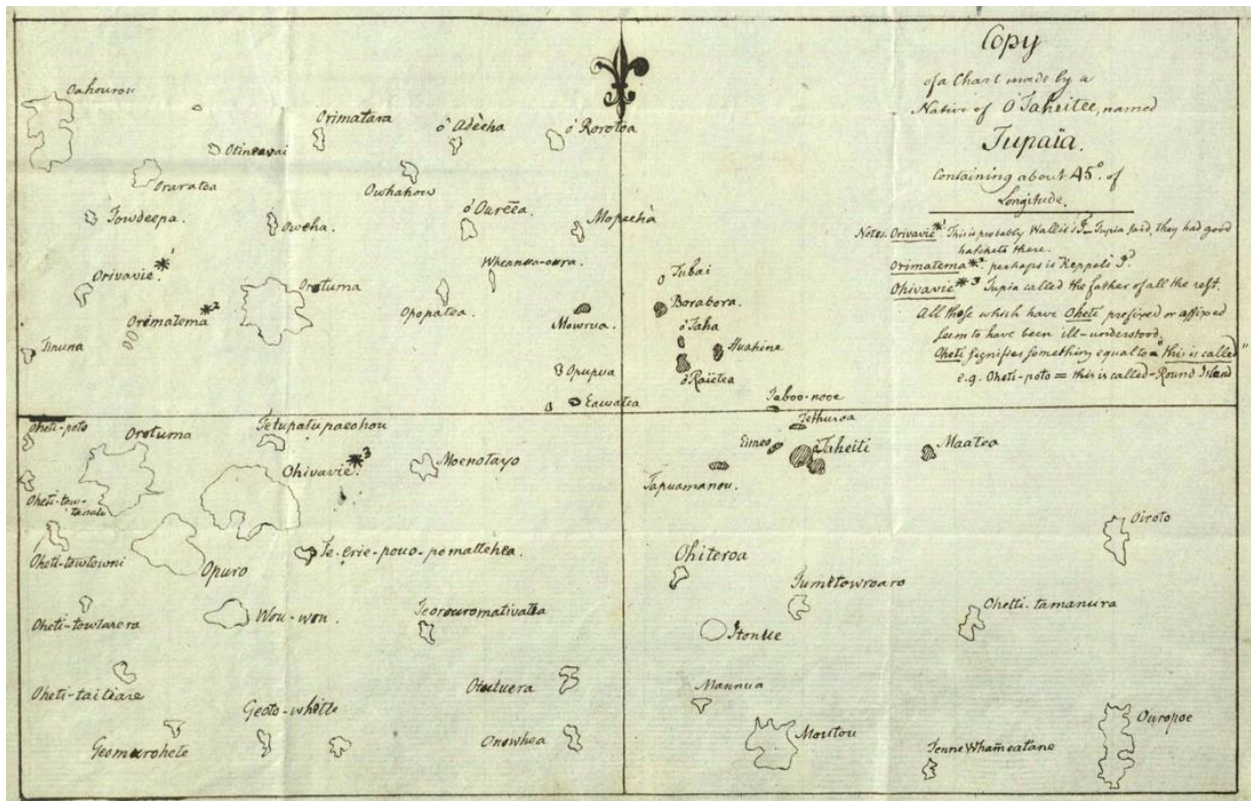 Copy
of a Chart made by a
Native of O'Taheitee, named
Tupaïa.
Containing about 45° of
Longitude.
Notes. Orivavie *1. This is probably Wallis's Iᵈ_ Tupia said, they had good
hatchets there.
Orimatema *2. perhaps is Keppel's Iᵈ.
Ohivavie *3 Tupia called the father of all the rest.
All those which have Oheti prefixed or affixed
seem to have been ill-understood.
Oheti signifies something equal to = "this is called"
e.g. Oheti-poto = this is called-Round Island
Oahourou
Orimatara
o' Adeeha
o' Rorotoa
Otineavai
Oraratoa
Owhahow
Towdeepa.
Oweha.
o' Oureea.
Mopeeha
Orivavie *1
Orotuma
Whennua-oura.
Tubai
Orimatema *2
Opopatea.
Mowrua.
Borabora.
o' Taha
Huahine
Tinuna
Opupua
o' Raietea
Eawatea
Taboo-nooe
Oheti-poto
Orotuma
Tetupatupaeahou
Tethuroa
Ohivavie *3
Moenotayo
Eimeo
o' Taheiti
Maatea
Oheti-tow-
Tapuamanou.
Oiroto
Oheti-towtowni
Opuro
Te-erie-pouo-pomattehea.
Ohiteroa
Tumetowroaro
Oheti-towtarera
Wou-wou.
Teorouromativatea
Itonue
Ohetti-tamanura
Oheti-taiteare
Otootuera
Mannua
Geoto-white
Geomurohete
Onowhea
Moutou
Tenne Whameatane
Ouropoe